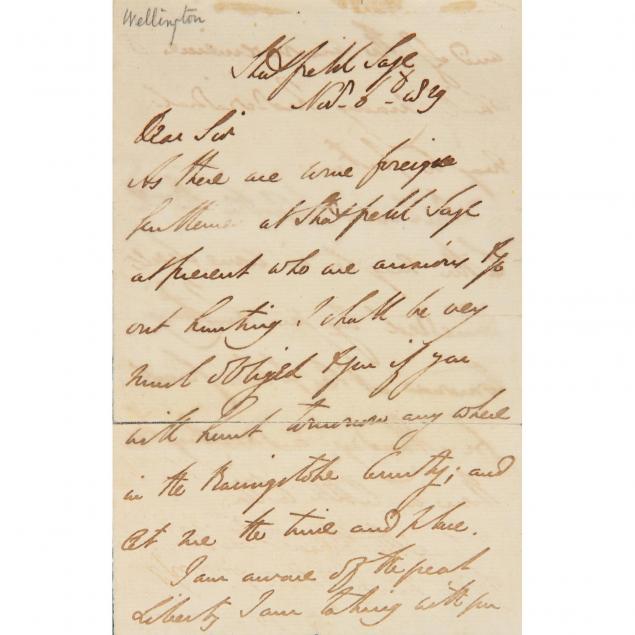 Wellington
Strathfield Saye
Nov. 8 1819
Dear Sir
As there are some foreign
Gentlemen at Strathfield Saye
at present who are anxious to go
out hunting I shall be very
much obliged to you if you
will hunt tomorrow any where
in the Basingstoke Country; and
let me the time and place.
I am aware of the great
Liberty I am taking with you